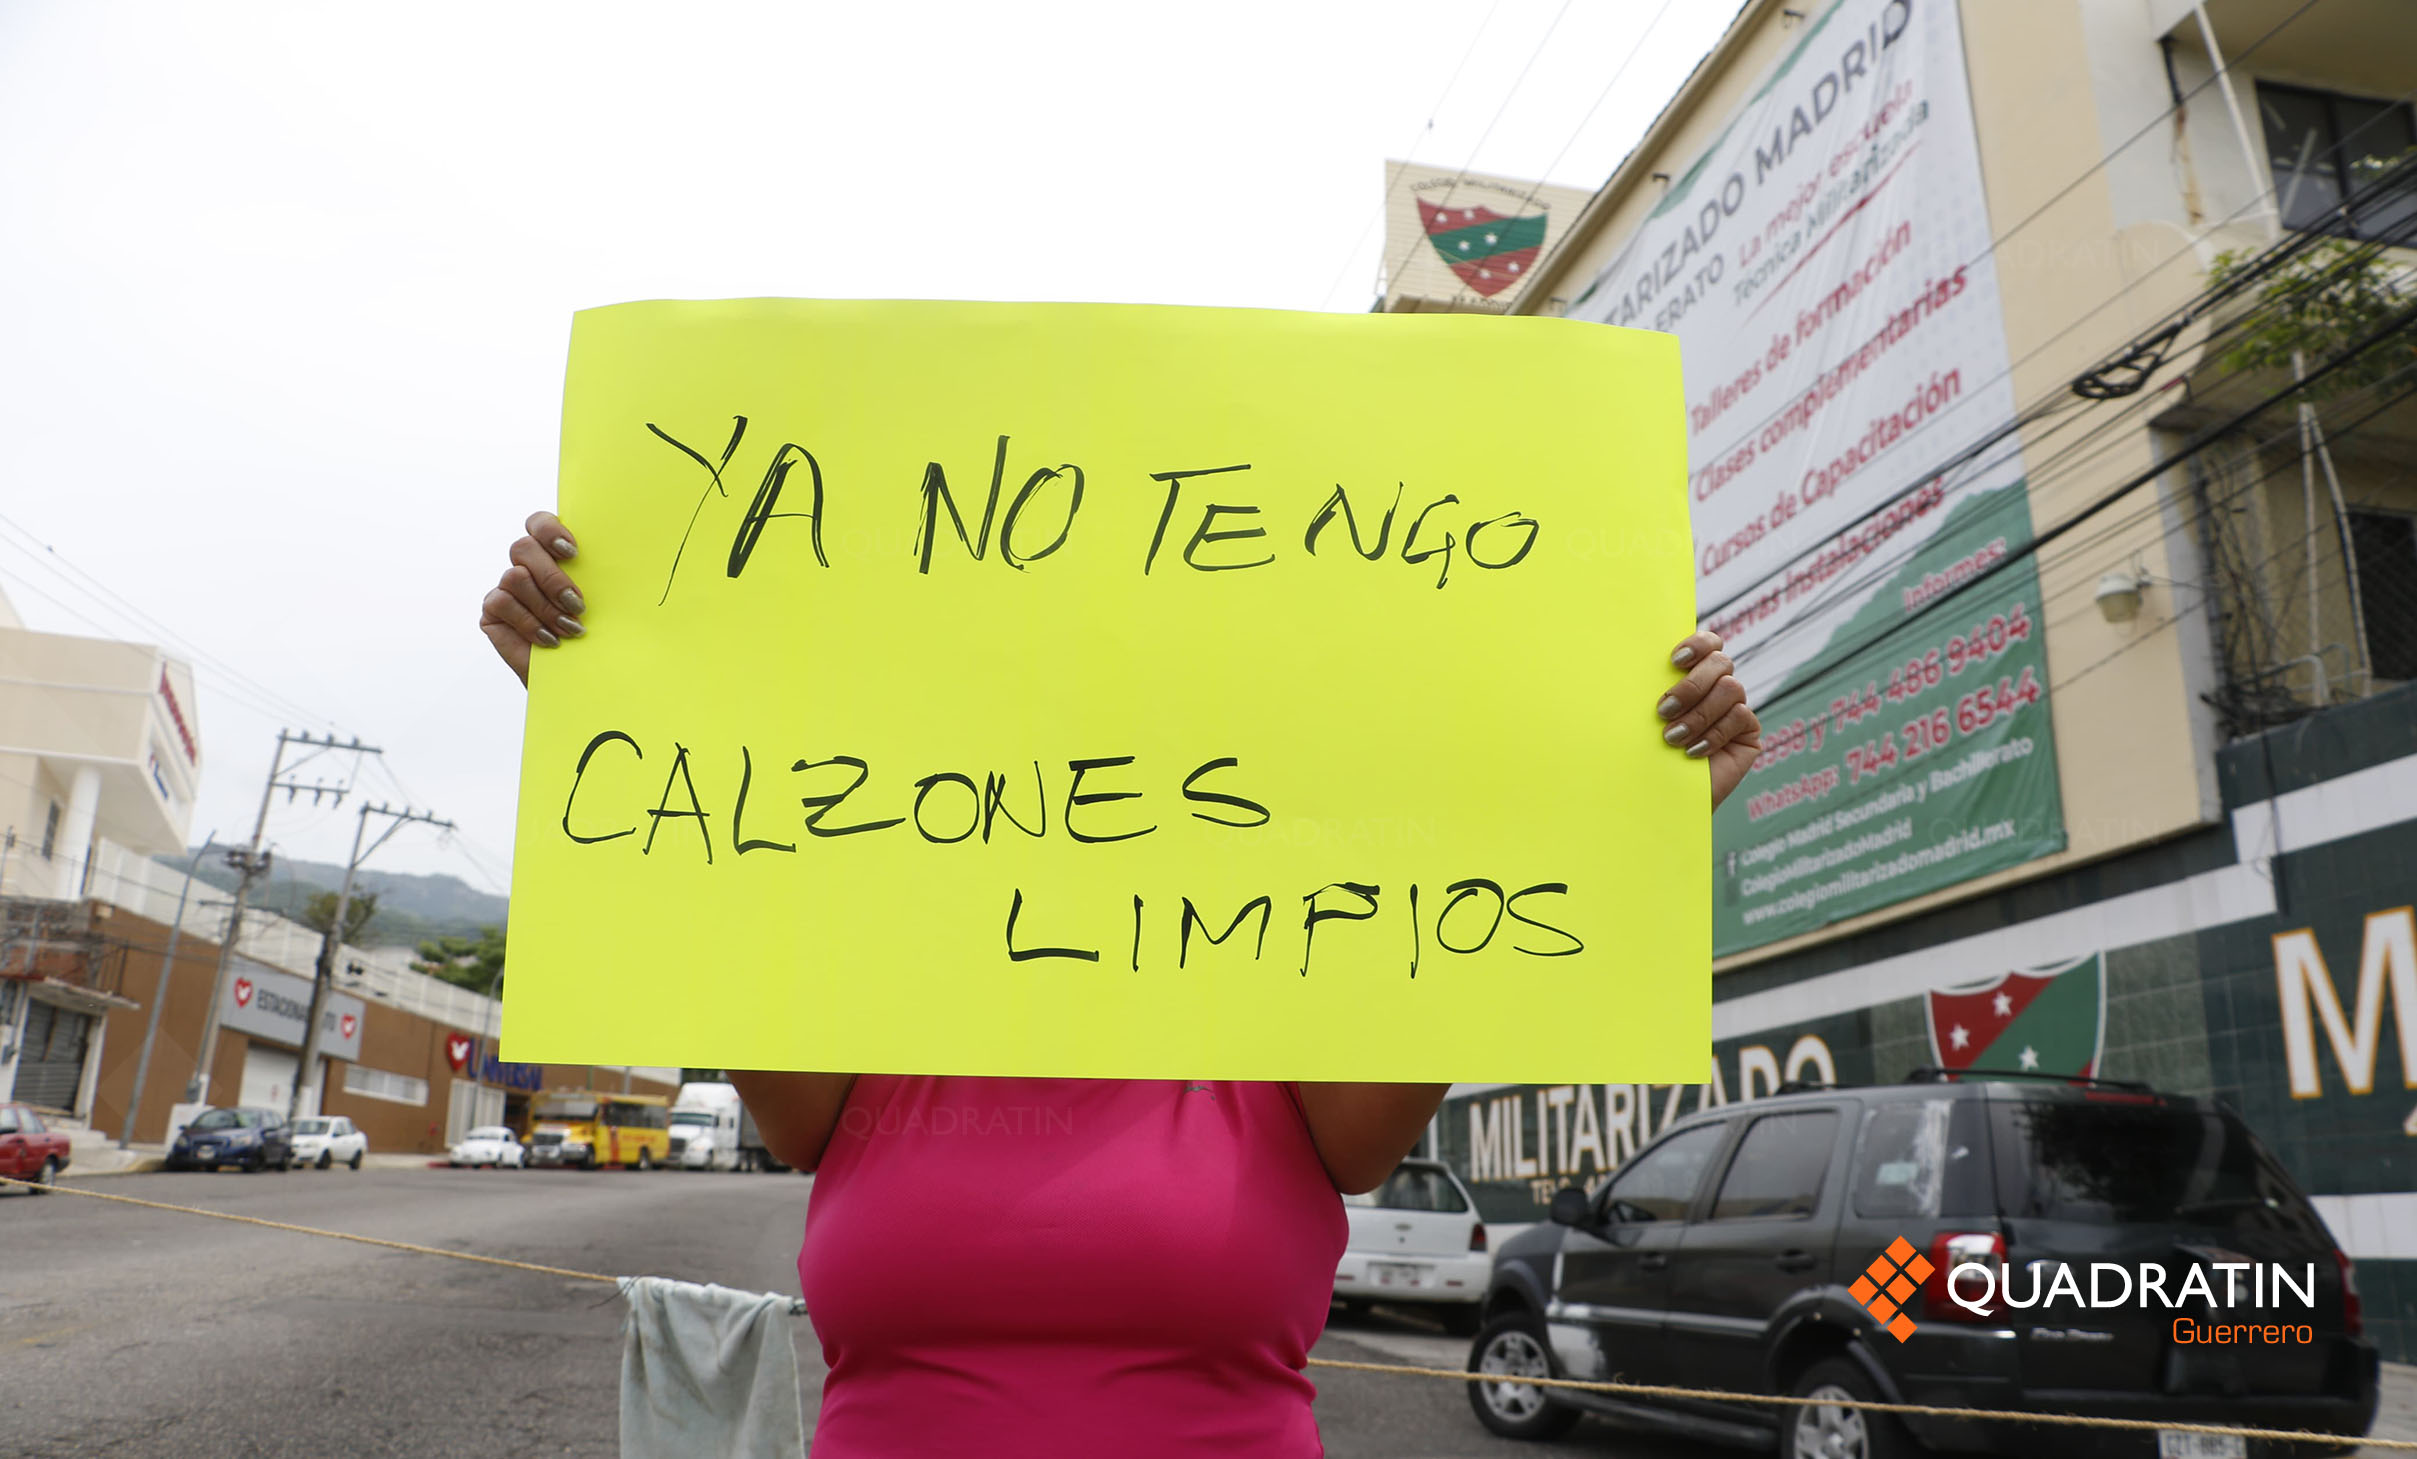 YA NO TENGO
CALZONES
LIMPIOS
COLEGIO MILITARIZADO
MADRID
TARIZADO MADRID
ERATO
La mejor escuela
Técnica Militarizada
Talleres de formación
Clases complementarias
Cursos de Capacitación
Nuevas Instalaciones
Informes:
9998 y 744 486 9404
WhatsApp: 744 216 6544
Colegio Madrid Secundaria y Bachillerato
ColegioMilitarizadoMadrid
www.colegiomilitarizadomadrid.mx
MILITARIZADO
M
UNIVERSAL
QUADRATIN
Guerrero